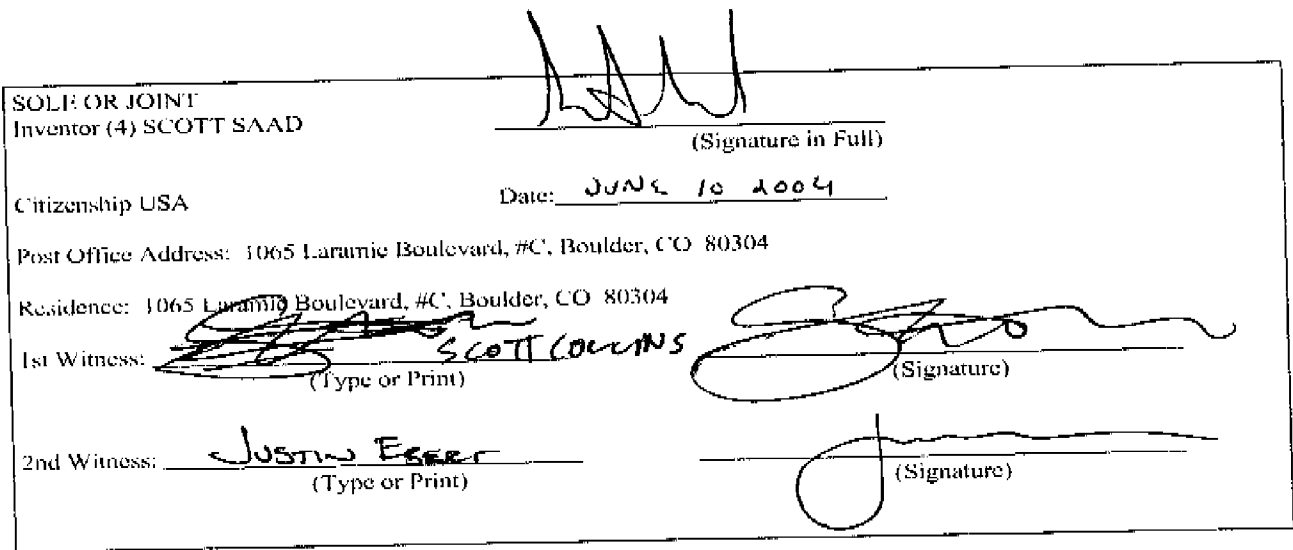 SOLE OR JOINT
Inventor (4) SCOTT SAAD
(Signature in Full)
Citizenship USA Date: JUNE 10 2004
Post Office Address: 1065 Laramie Boulevard, #C, Boulder, CO 80304
Residence: 1065 Laramie Boulevard, #C, Boulder, CO 80304
1st Witness: SCOTT COLLINS
(Type or Print) (Signature)
2nd Witness: JUSTIN EBERT
(Type or Print) (Signature)